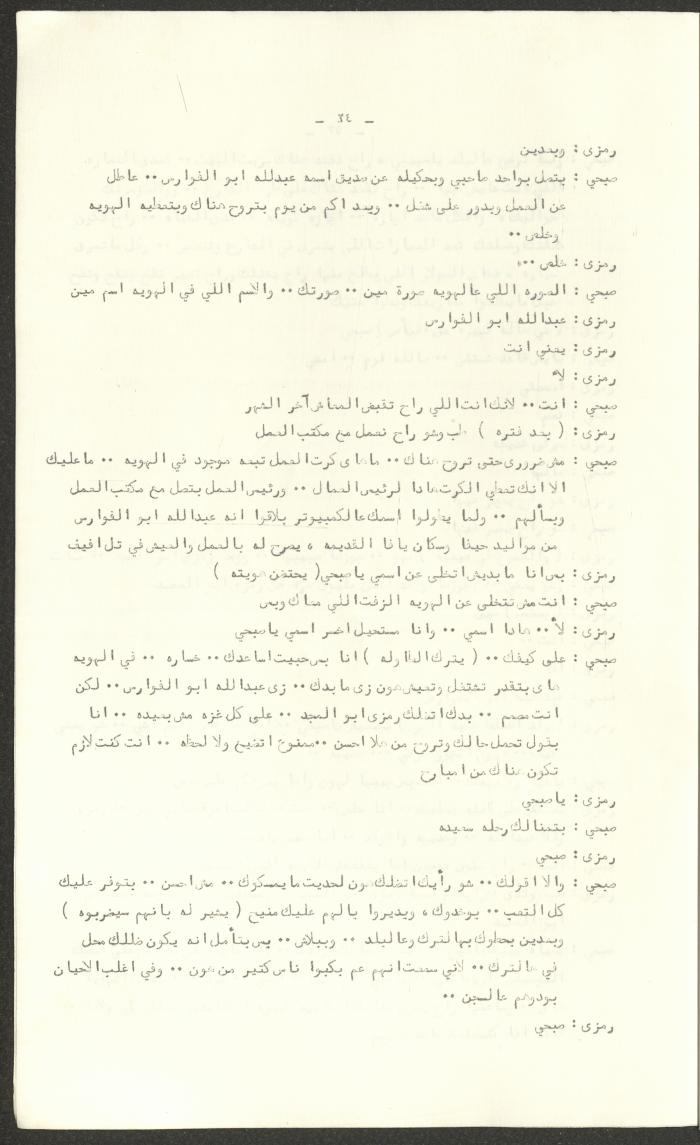 - ٣٤ -
رمزى : وبعدين
صبحي : بتصل بواحد صاحبي وبحكيله عن صديق اسمه عبدلله ابو الفوارس ٠٠ عاطل
عن العمل وبدور على شغل ٠٠ وبعد اكم من يوم بتروح هناك وبتعطيه الهويه
وخلص ٠٠
رمزى : خلص ٠٠
صبحي : الصوره اللي عالهويه صورة مين ٠٠ صورتك ٠٠ والاسم اللي في الهويه اسم مين
رمزى : عبدالله ابو الفوارس
صبحي : يعني انت
رمزى : لأ
صبحي : انت ٠٠ لانك انت اللي راح تقبض المعاش آخر الشهر
رمزى : ( بعد فتره ) طب وشو راح نعمل مع مكتب العمل
صبحي : مش ضرورى حتى تروح هناك ٠٠ ماهاى كرت العمل تبعه موجود في الهويه ٠٠ ماعليك
الا انك تعطي الكرت هادا لرئيس العمال ٠٠ ورئيس العمل بتصل مع مكتب العمل
وبسألهم ٠٠ ولما يطولوا اسمك عالكمبيوتر بلاقوا انه عبدالله ابو الفوارس
من مواليد حيفا وسكان يافا القديمه ، يصرح له بالعمل والعيش في تل افيف
رمزى : بس انا مابديش اتخلى عن اسمي ياصبحي ( يحتضن هويته )
صبحي : انت مش تتخلى عن الهويه الزفت اللي معاك وبس
رمزى : لأ ٠٠ هادا اسمي ٠٠ وانا مستحيل اخسر اسمي ياصبحي
صبحي : على كيفك ٠٠ ( يترك الطاوله ) انا بس حبيت اساعدك ٠٠ خساره ٠٠ في الهويه
هاى بتقدر تشتغل وتعيش هون زى مابدك ٠٠ زى عبدالله ابو الفوارس ٠٠ لكن
انت مصمم ٠٠ بدك اتظلك رمزى ابو المجد ٠٠ على كل غزه مش بعيده ٠٠ انا
بقول تحمل حالك وتروح من هلا احسن ٠٠ ممنوع اتضيع ولا لحظه ٠٠ انت كنت لازم
تكون هناك من امبارح
رمزى : ياصبحي
صبحي : بتمنالك رحله سعيده
رمزى : صبحي
صبحي : والا اقولك ٠٠ شو رأيك اتظلك هون لحديت مايمسكوك ٠٠ مش احسن ٠٠ بتوفر عليك
كل التعب ٠٠ بوخدوك ، وبديروا بالهم عليك منيح ( يشير له بانهم سيضربوه )
وبعدين بحطوك بهالترك وعالبلد ٠٠ وببلاش ٠٠ بس بتأمل انه يكون ظللك محل
في هالترك ٠٠ لاني سمعت انهم عم بكبوا ناس كتير من هون ٠٠ وفي اغلب الاحيان
بودوهم عالسجن ٠٠
رمزى : صبحي